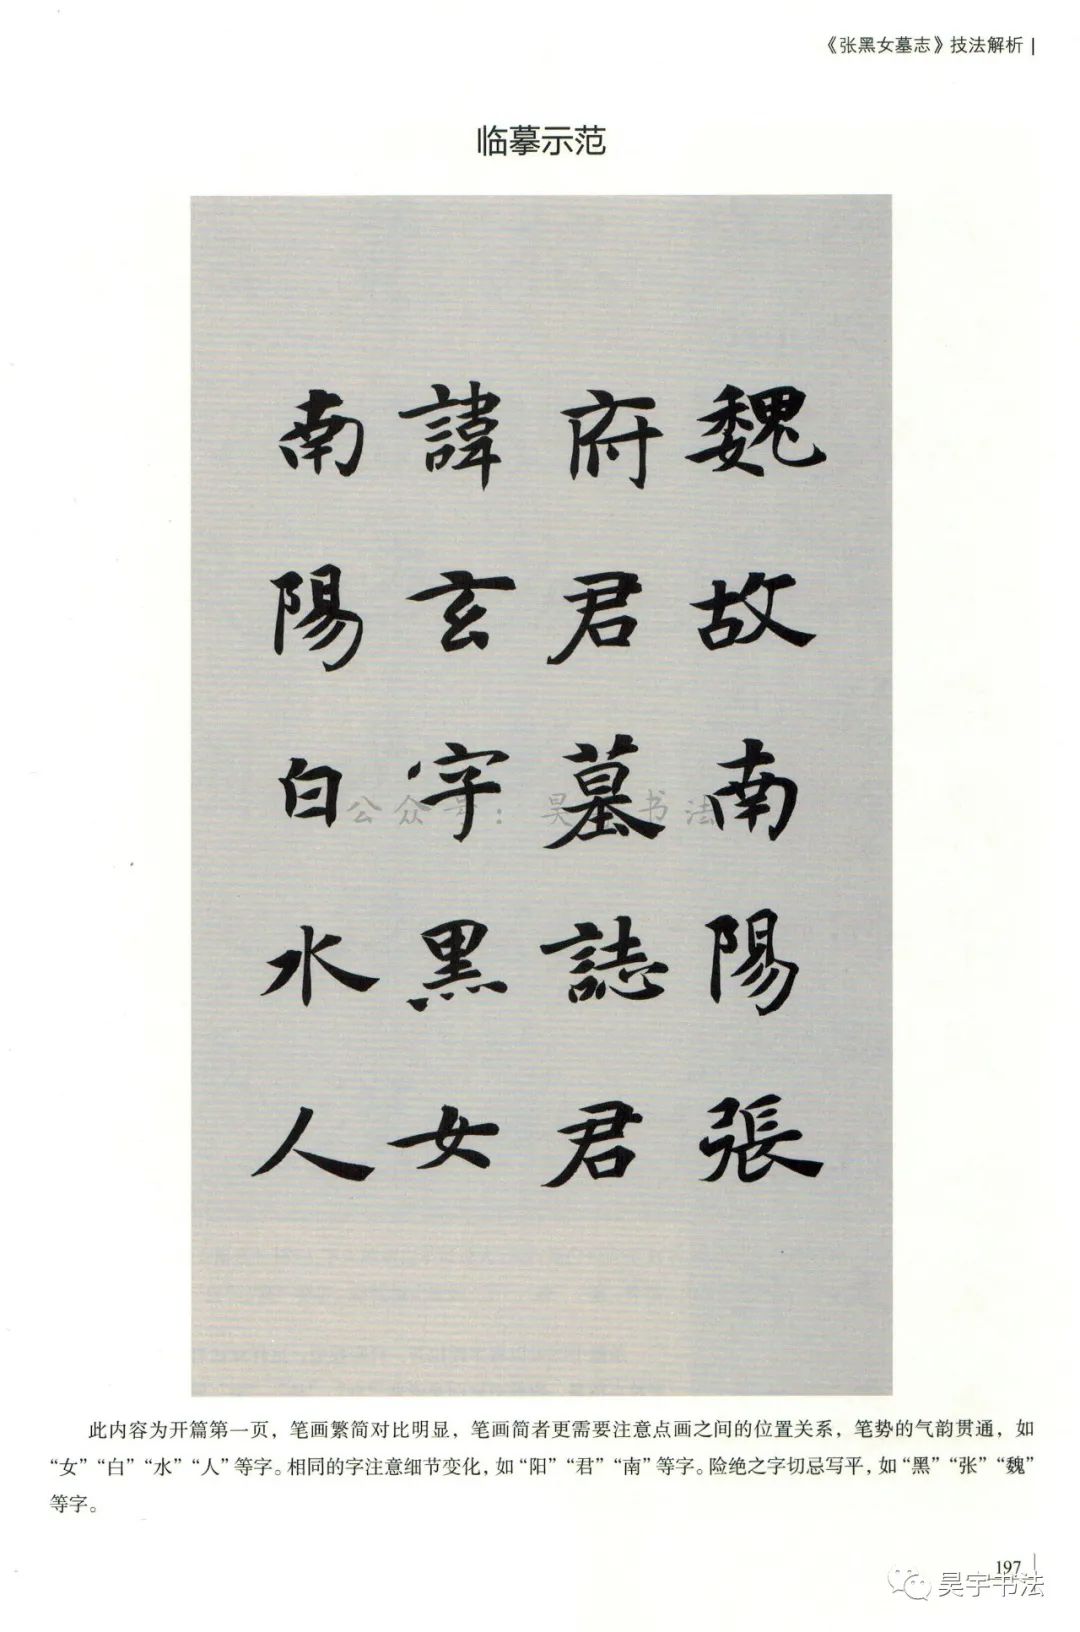 《张黑女墓志》技法解析
临摹示范
魏故南陽張
府君墓誌君
諱玄字黑女
南陽白水人
公众号：昊宇书法
此内容为开篇第一页，笔画繁简对比明显，笔画简者更需要注意点画之间的位置关系，笔势的气韵贯通，如
“女”“白”“水”“人”等字。相同的字注意细节变化，如“阳”“君”“南”等字。险绝之字切忌写平，如“黑”“张”“魏”
等字。
197
昊宇书法